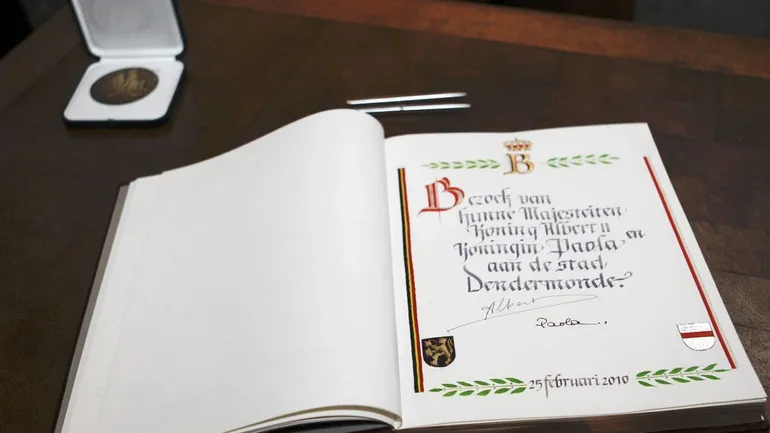 B
Bezoek van
hunne Majesteiten
Koning Albert II
Koningin Paola en
aan de stad
Dendermonde.
Albert
Paola
25 februari 2010